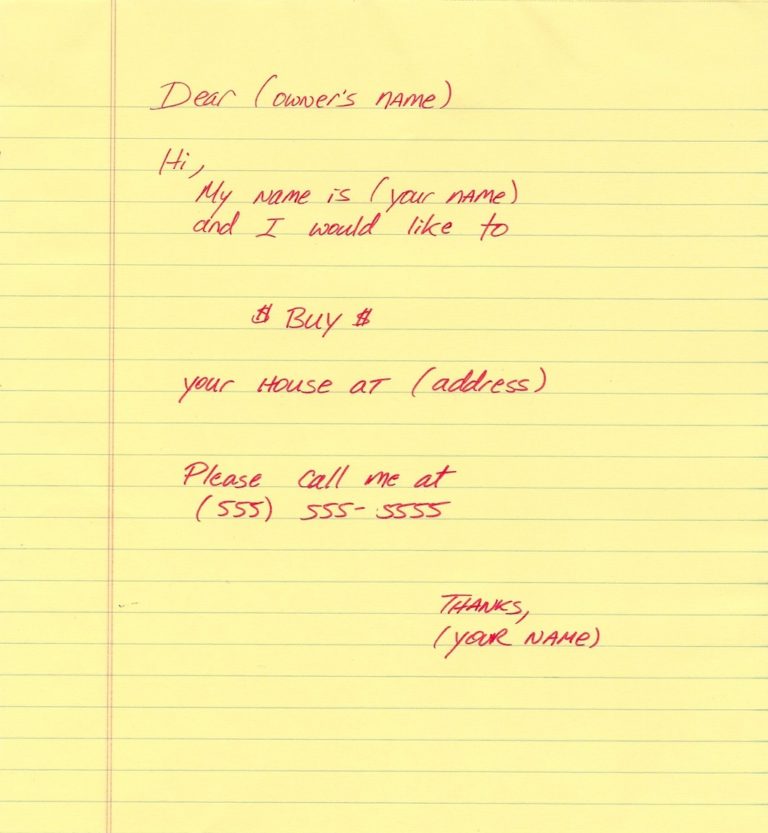 Dear (owner's name)
Hi,
My name is (your name)
and I would like to
$ Buy $
your House at (address)
Please call me at
(555) 555-5555
Thanks,
(your name)